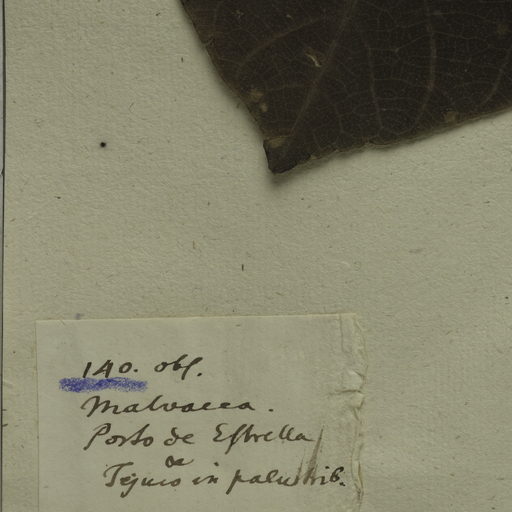 140. obs.
Malvacea.
Porto de Estrella
de
Tejuco in palustrib.